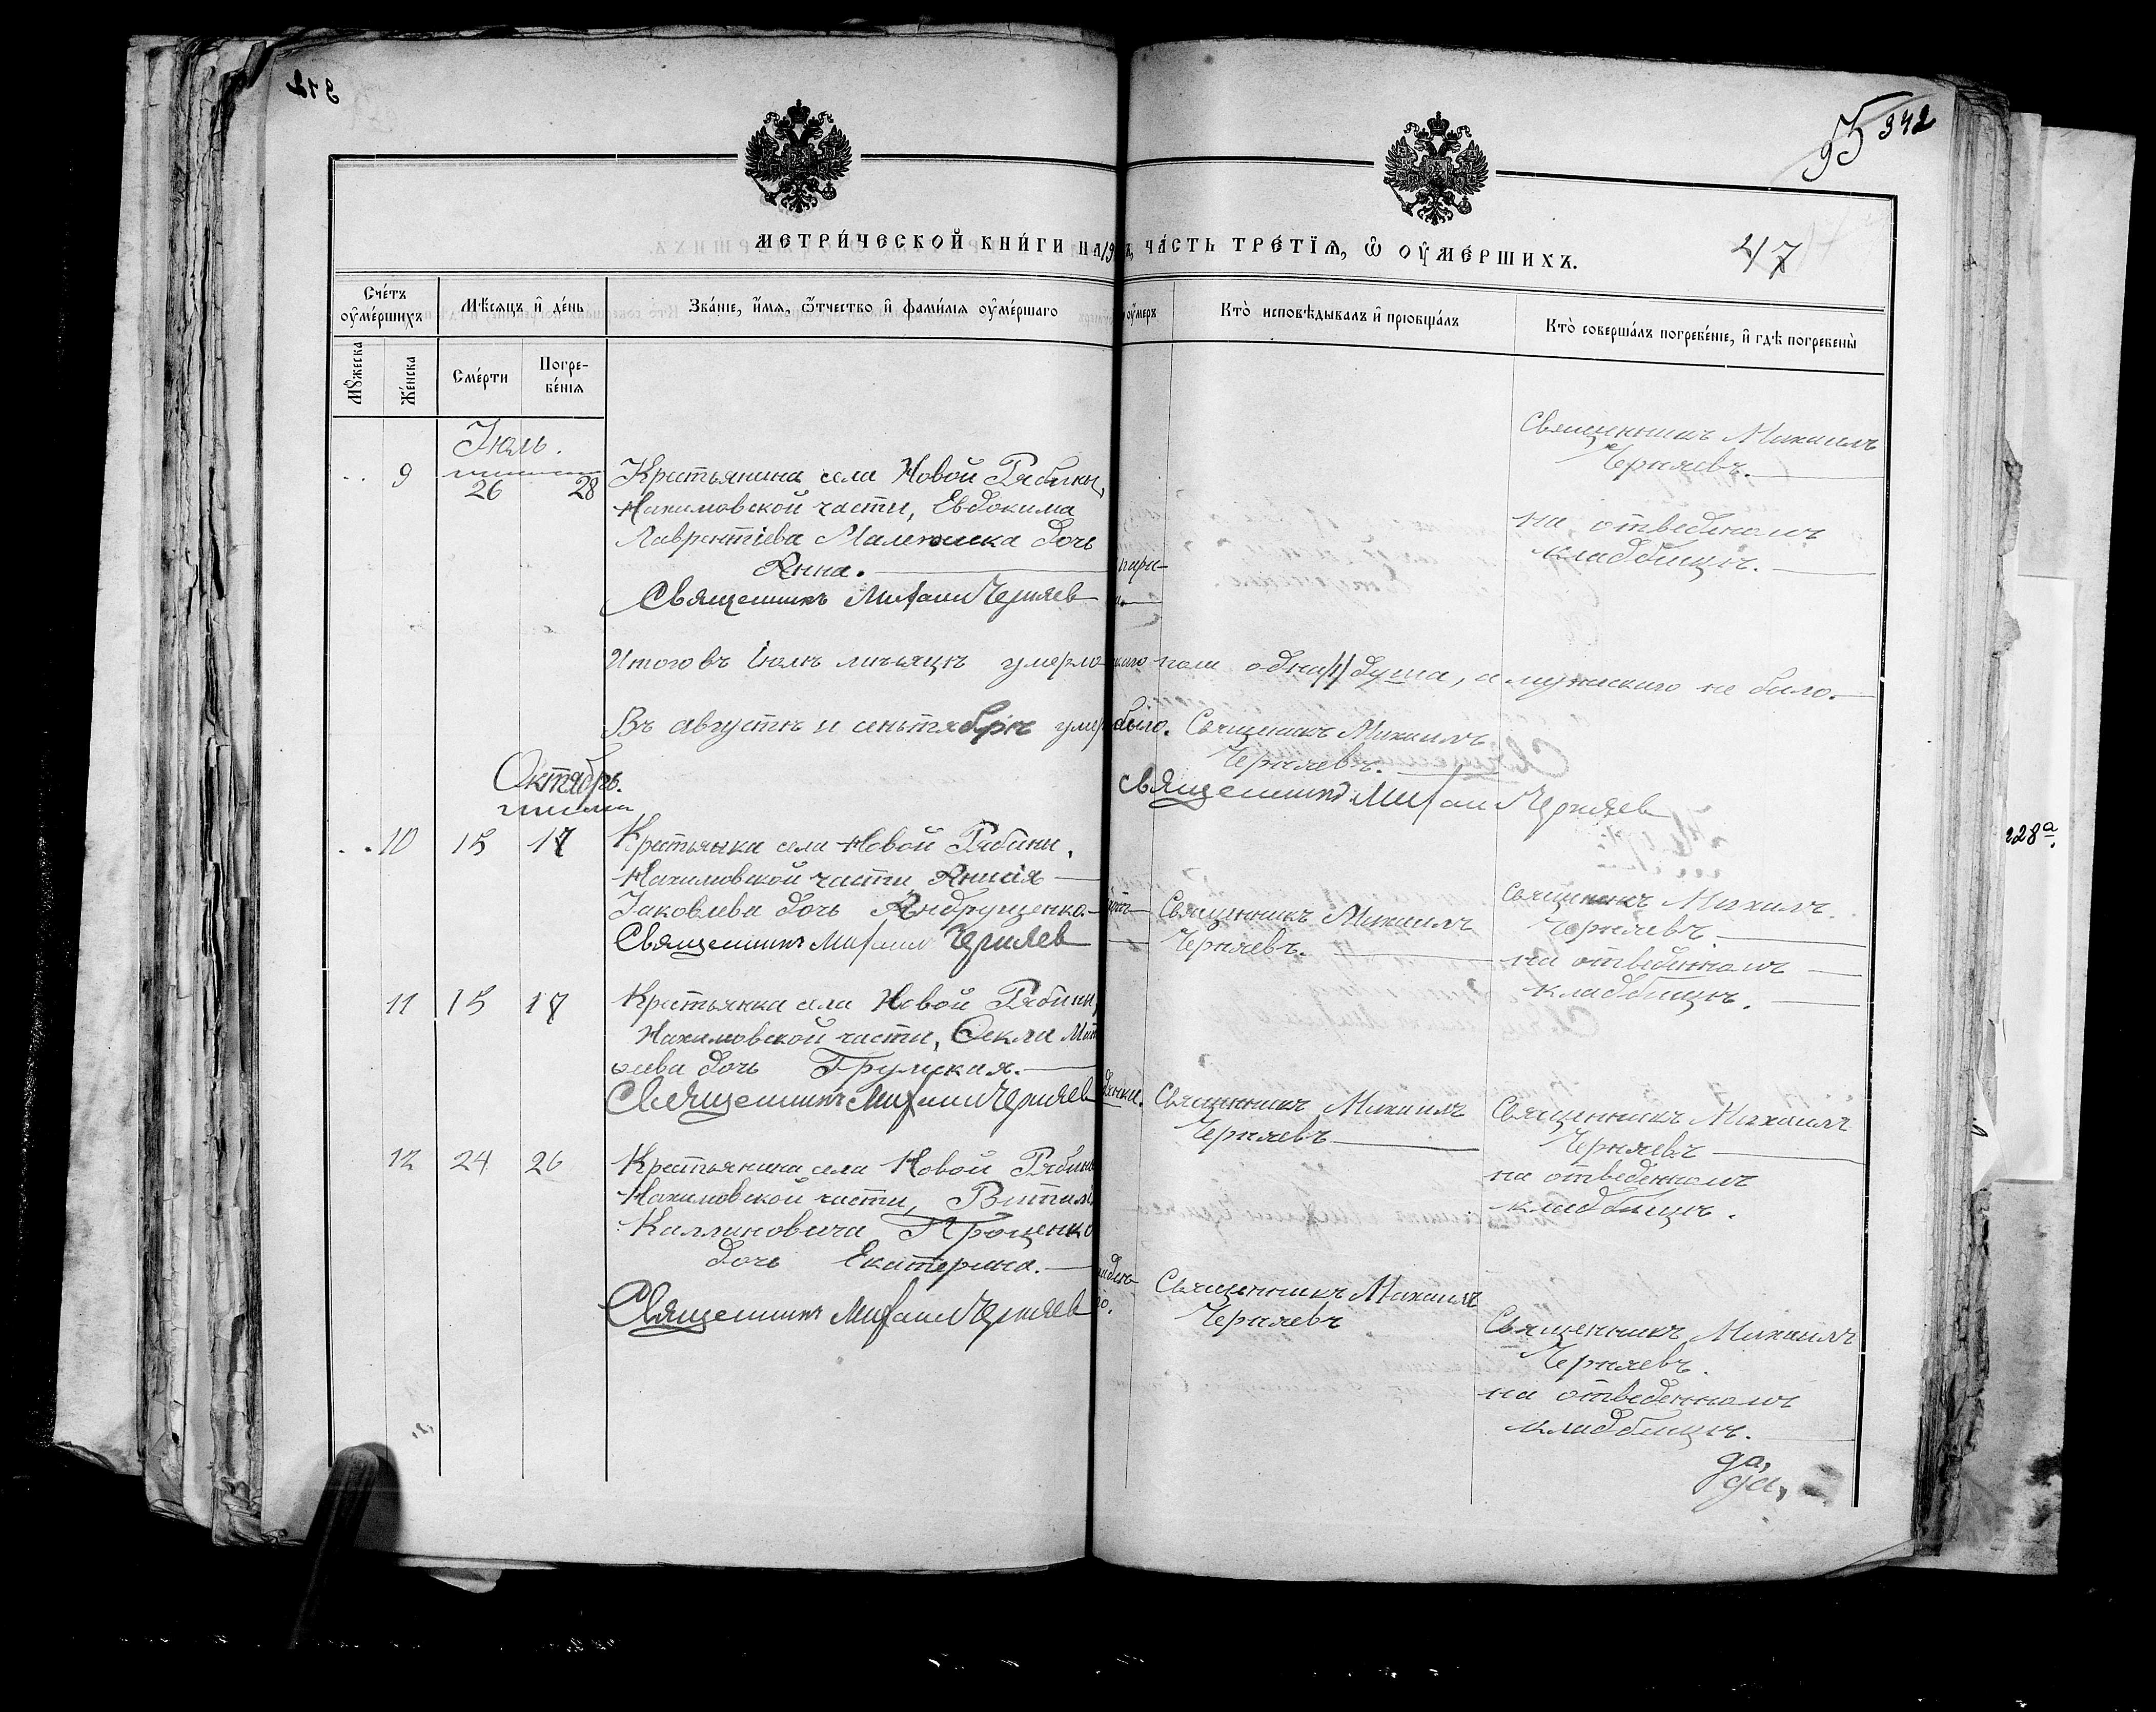 342
95
47
МЕТРИ́ЧЕСКОЙ КНИ́ГИ НА 19
Ъ, ЧА́СТЬ ТРЕ́ТЇѦ, Ѡ҆ ОУ҆МЕ́РШИХЪ.
Сче́тъ оу҆ме́ршихъ
Мѣ́сѧцъ и҆ де́нь
Зва́нїе, и҆́мѧ, ѻ҆́тчество и҆ фами́лїѧ оу҆ме́ршаго
оу҆́меръ
Кто̀ исповѣ́дывалъ и҆ прїобща́лъ
Кто̀ соверша́лъ погребе́нїе, и҆ гдѣ̀ погребены̀
Мꙋ́жеска
Же́нска
Сме́рти
Погре-
бе́нїѧ
Іюль.
9
26
28
Крестьянина села Новой Рябины,
Нахимовской части, Евдокима
Лаврентіева дочь
Анна.
Священникъ Михаил Черняев
Священникъ Михаилъ
Черняевъ.
на отведенномъ
кладбищѣ.
Итого въ Іюлѣ мѣсяцѣ умерло
кого пола одна /1/ душа, а мужского не было.
Въ августѣ и сентябрѣ умер
было. Священникъ Михаилъ
Черняевъ.
Священникъ Михаил Черняев
Октябрь.
10
15
17
Крестьянка села Новой Рябины,
Нахимовской части Анисія
Іаковлева дочь Андрущенко.
Священникъ Михаил Черняев
Священникъ Михаилъ
Черняевъ.
Священникъ Михаилъ
Черняевъ
на отведенномъ
кладбищѣ.
11
15
17
Крестьянка села Новой Рябины,
Нахимовской части, Ѳекла Мат
ѳеева дочь
Священникъ Михаил Черняев
Священникъ Михаилъ
Черняевъ
Священникъ Михаилъ
Черняевъ
на отведенномъ
кладбищѣ.
12
24
26
Крестьянина села Новой Рябины
Нахимовской части,
Каллиновича Проценко
дочь Екатерина.
Священникъ Михаил Черняев
Священникъ Михаилъ
Черняевъ
Священникъ Михаилъ
Черняевъ.
на отведенномъ
кладбищѣ.
да,
да,
228а